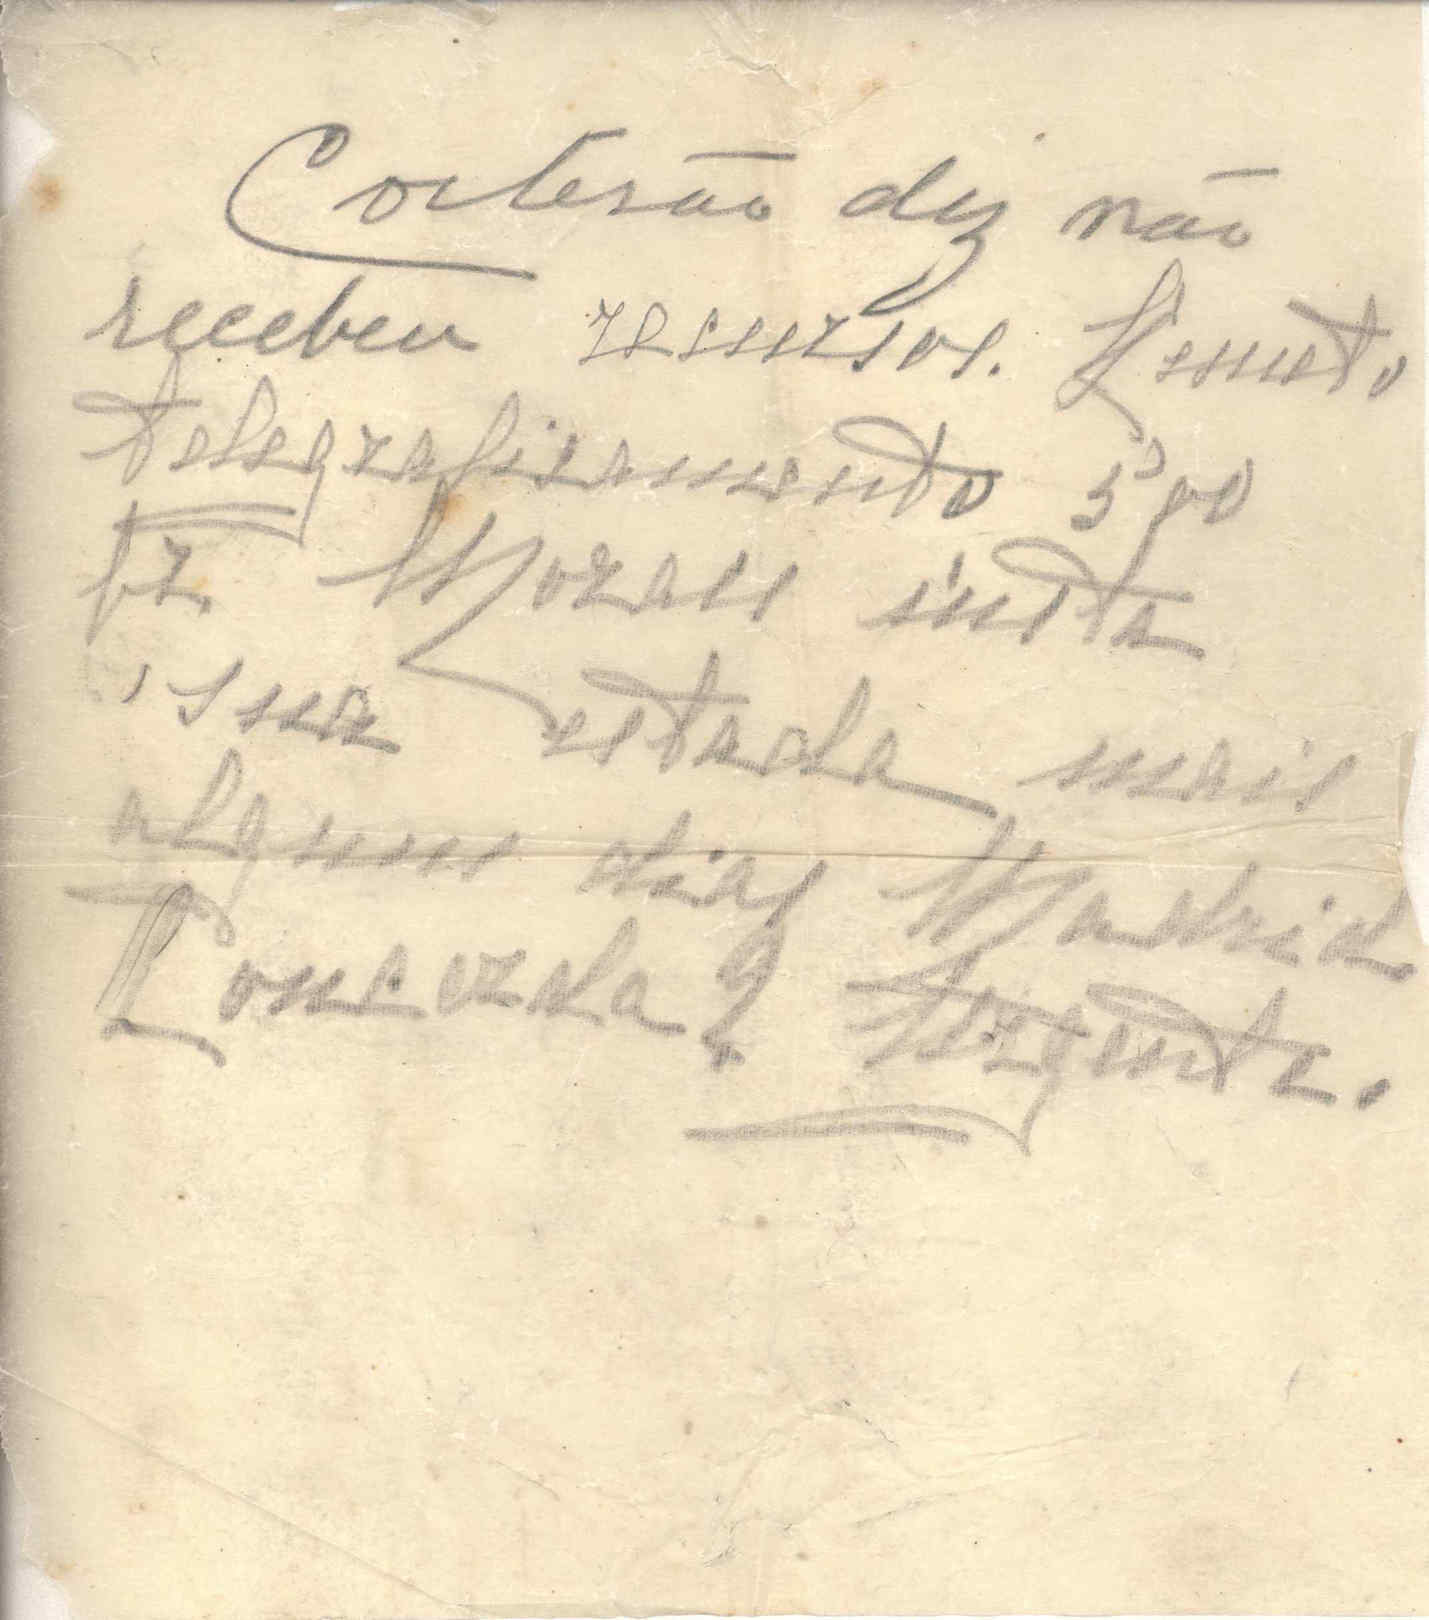 Cortesão diz não
receber recursos. Remeto
telegraficamente 500
fr. Moraes insta
sua estada mais
alguns dias Madrid
Concorda? Urgente.